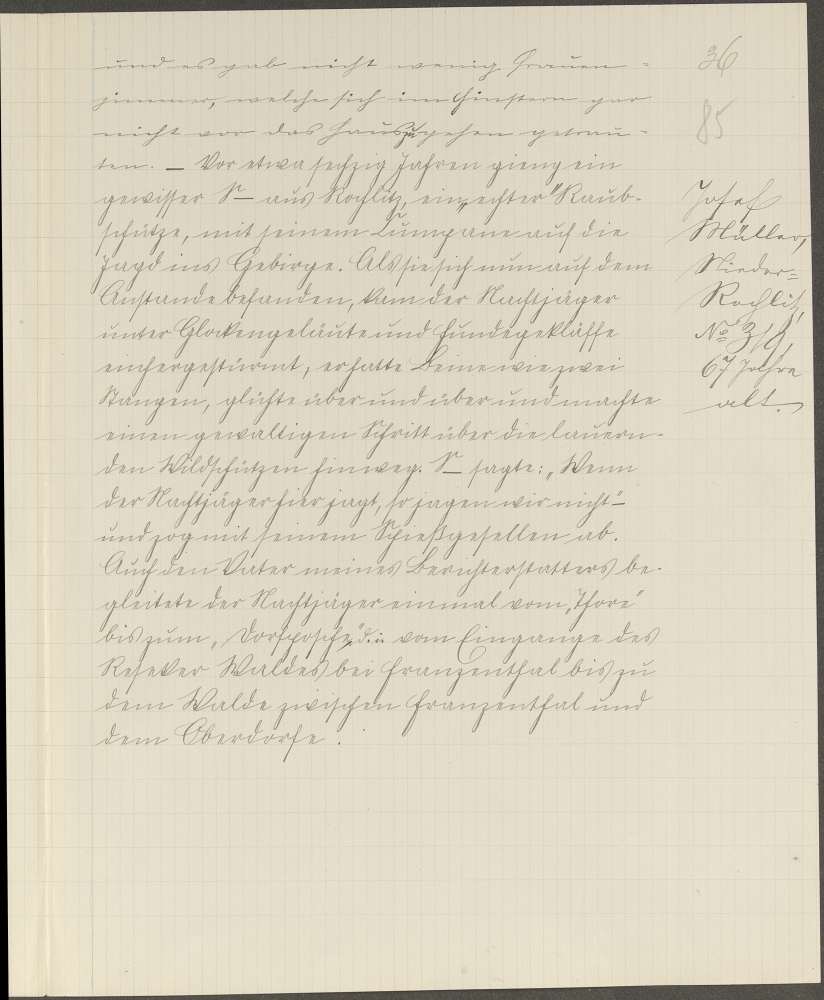 36
85
und es gab nicht wenig Frauen-
zimmer, welche sich im Finstern gar
nicht vor das Haus zu gehen getrau-
ten. — Vor etwa sechzig Jahren gieng ein
gewisser S— aus Rochlitz, ein „echter" Raub-
schütze, mit seinem Kumpane auf die
Jagd ins Gebirge. Als sie sich nun auf dem
Anstande befanden, kam der Nachtjäger
unter Glockengeläute und Hundegekläffe
einhergestürmt, er hatte Beine wie zwei
Stangen, glühte über und über und machte
einen gewaltigen Schritt über die lauern-
den Wildschützen hinweg. S— sagte: „Wenn
der Nachtjäger hier jagt, so jagen wir nicht" —
und zog mit seinem Schießgesellen ab.
Auch den Vater meines Berichterstatters be-
gleitete der Nachtjäger einmal vom „Thore"
bis zum „Dorfposche", d. i. vom Eingange des
Reseker Waldes bei Franzenthal bis zu
dem Walde zwischen Franzenthal und
dem Oberdorfe.
Josef
Müller,
Nieder-
Rochlitz,
No 319,
67 Jahre
alt.